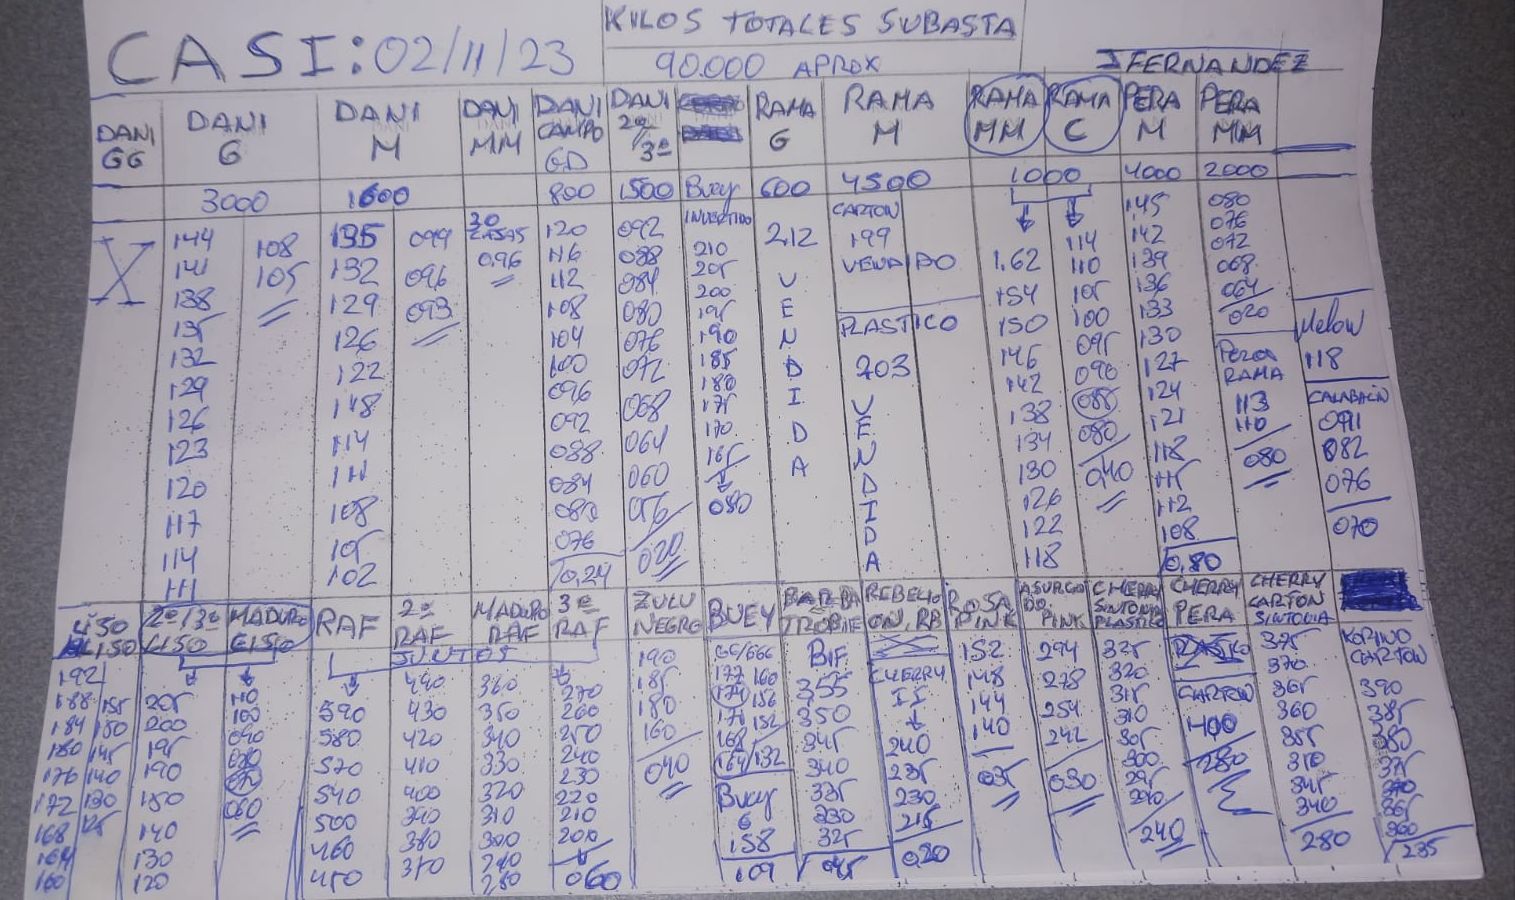 CASI: 02/11/23
KILOS TOTALES SUBASTA
90.000 APROX
J FERNANDEZ
DANI GG
DANI G
DANI M
DANI MM
DANI CAMPO GD
DANI 2ª/3ª
RAMA G
RAMA M
RAMA MM
RAMA C
PERA M
PERA MM
3000
1600
800
1500
Buey
600
4500
1000
4000
2000
X
144
141
138
135
132
129
126
123
120
117
114
111
108
105
135
132
129
126
122
118
114
111
108
105
102
099
096
093
0,96
120
116
112
108
104
100
096
092
088
084
080
076
0,24
092
088
084
080
076
072
068
064
060
056
020
INVERTIDO
210
205
200
195
190
185
180
175
170
165
080
212
VENDIDA
CARTON
199
VENDIDO
PLASTICO
203
VENDIDA
1.62
154
150
146
142
138
134
130
126
122
118
114
110
105
100
095
090
085
080
040
145
142
139
136
133
130
127
124
121
118
115
112
108
0,80
080
076
072
068
064
020
PERA
RAMA
113
110
080
Melow
118
CALABACIN
091
082
076
070
LISO
2ª/3ª LISO
MADURO LISO
RAF
2ª RAF
MADURO RAF
3ª RAF
ZULU NEGRO
BUEY
REBELION, RB
ROSA PINK
ASURCADO PINK
CHERRY SINTONIA PLASTICO
CHERRY PERA
CHERRY CARTON SINTONIA
JUNTOS
192
188
184
180
176
172
168
164
160
155
150
145
140
130
125
205
200
195
190
150
140
130
120
110
100
090
060
590
580
570
540
500
460
450
440
430
420
410
400
390
380
370
360
350
340
330
320
310
300
290
280
270
260
250
240
230
220
210
200
060
190
185
180
160
040
GG/666
177 160
174 156
171 152
168
164/132
Buey
G
158
109
BIF
355
350
345
340
335
330
325
045
CHERRY
II
240
235
230
215
020
152
148
144
140
035
294
278
254
242
030
325
320
315
310
305
300
295
290
240
CARTON
400
280
375
370
365
360
355
350
345
340
280
KORINO
CARTON
390
385
380
375
370
365
360
235